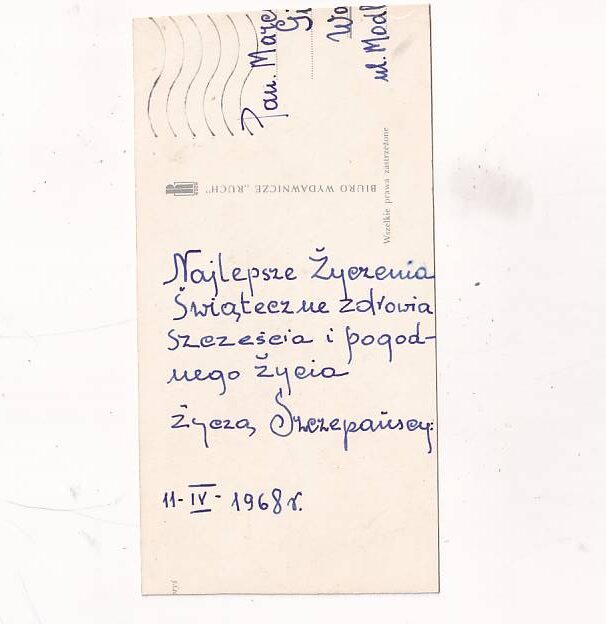 Pan. Marc
Gi
Wa
ul. Modl
BIURO WYDAWNICZE „RUCH”
Wszelkie prawa zastrzeżone
Najlepsze Życzenia
Świąteczne zdrowia
szczęścia i pogod-
nego życia
życzą Szczepańscy.
11-IV-1968 r.